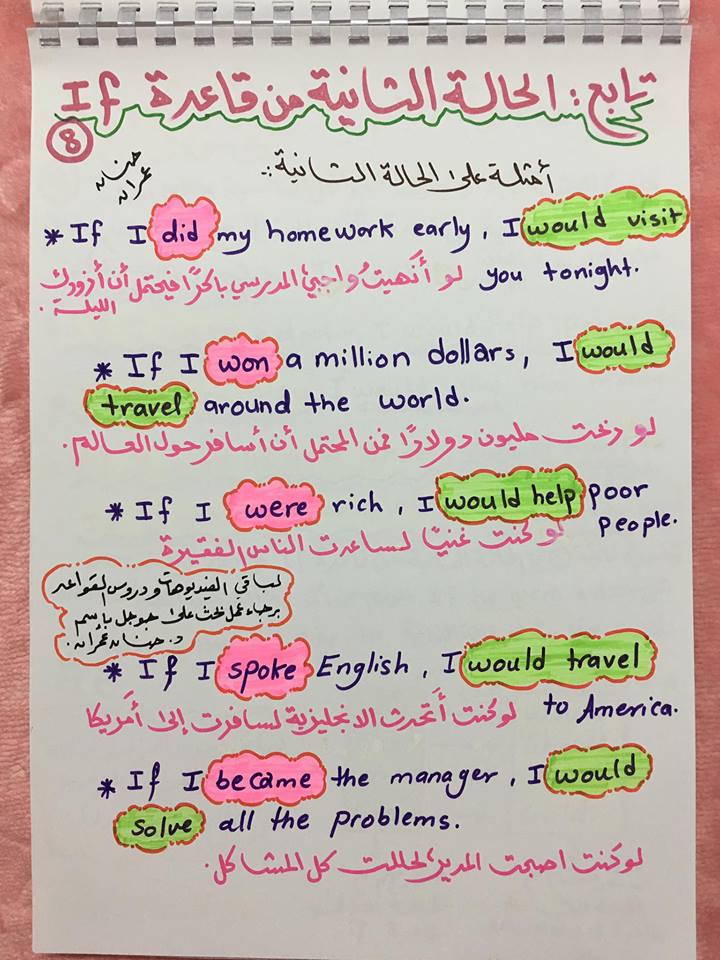 تابع: الحالة الثانية من قاعدة If
8
حنان
عمران
أمثلة على الحالة الثانية:
* If I did my homework early, I would visit
you tonight.
لو أنهيتُ واجبي المدرسي باكرًا فيحتمل أن أزورك
الليلة.
* If I won a million dollars, I would
travel around the world.
لو ربحت مليون دولارًا فمن المحتمل أن أسافر حول العالم.
* If I were rich, I would help poor
people.
لو كنت غنيًا لساعدت الناس الفقيرة
لباقي الفيديوهات ودروس القواعد
برجاء عمل بحث على جوجل باسم
د. حنان عمران.
* If I spoke English, I would travel
to America.
لو كنت أتحدث الانجليزية لسافرت إلى أمريكا
* If I became the manager, I would
solve all the problems.
لو كنت اصبحت المدير لحللت كل المشاكل.